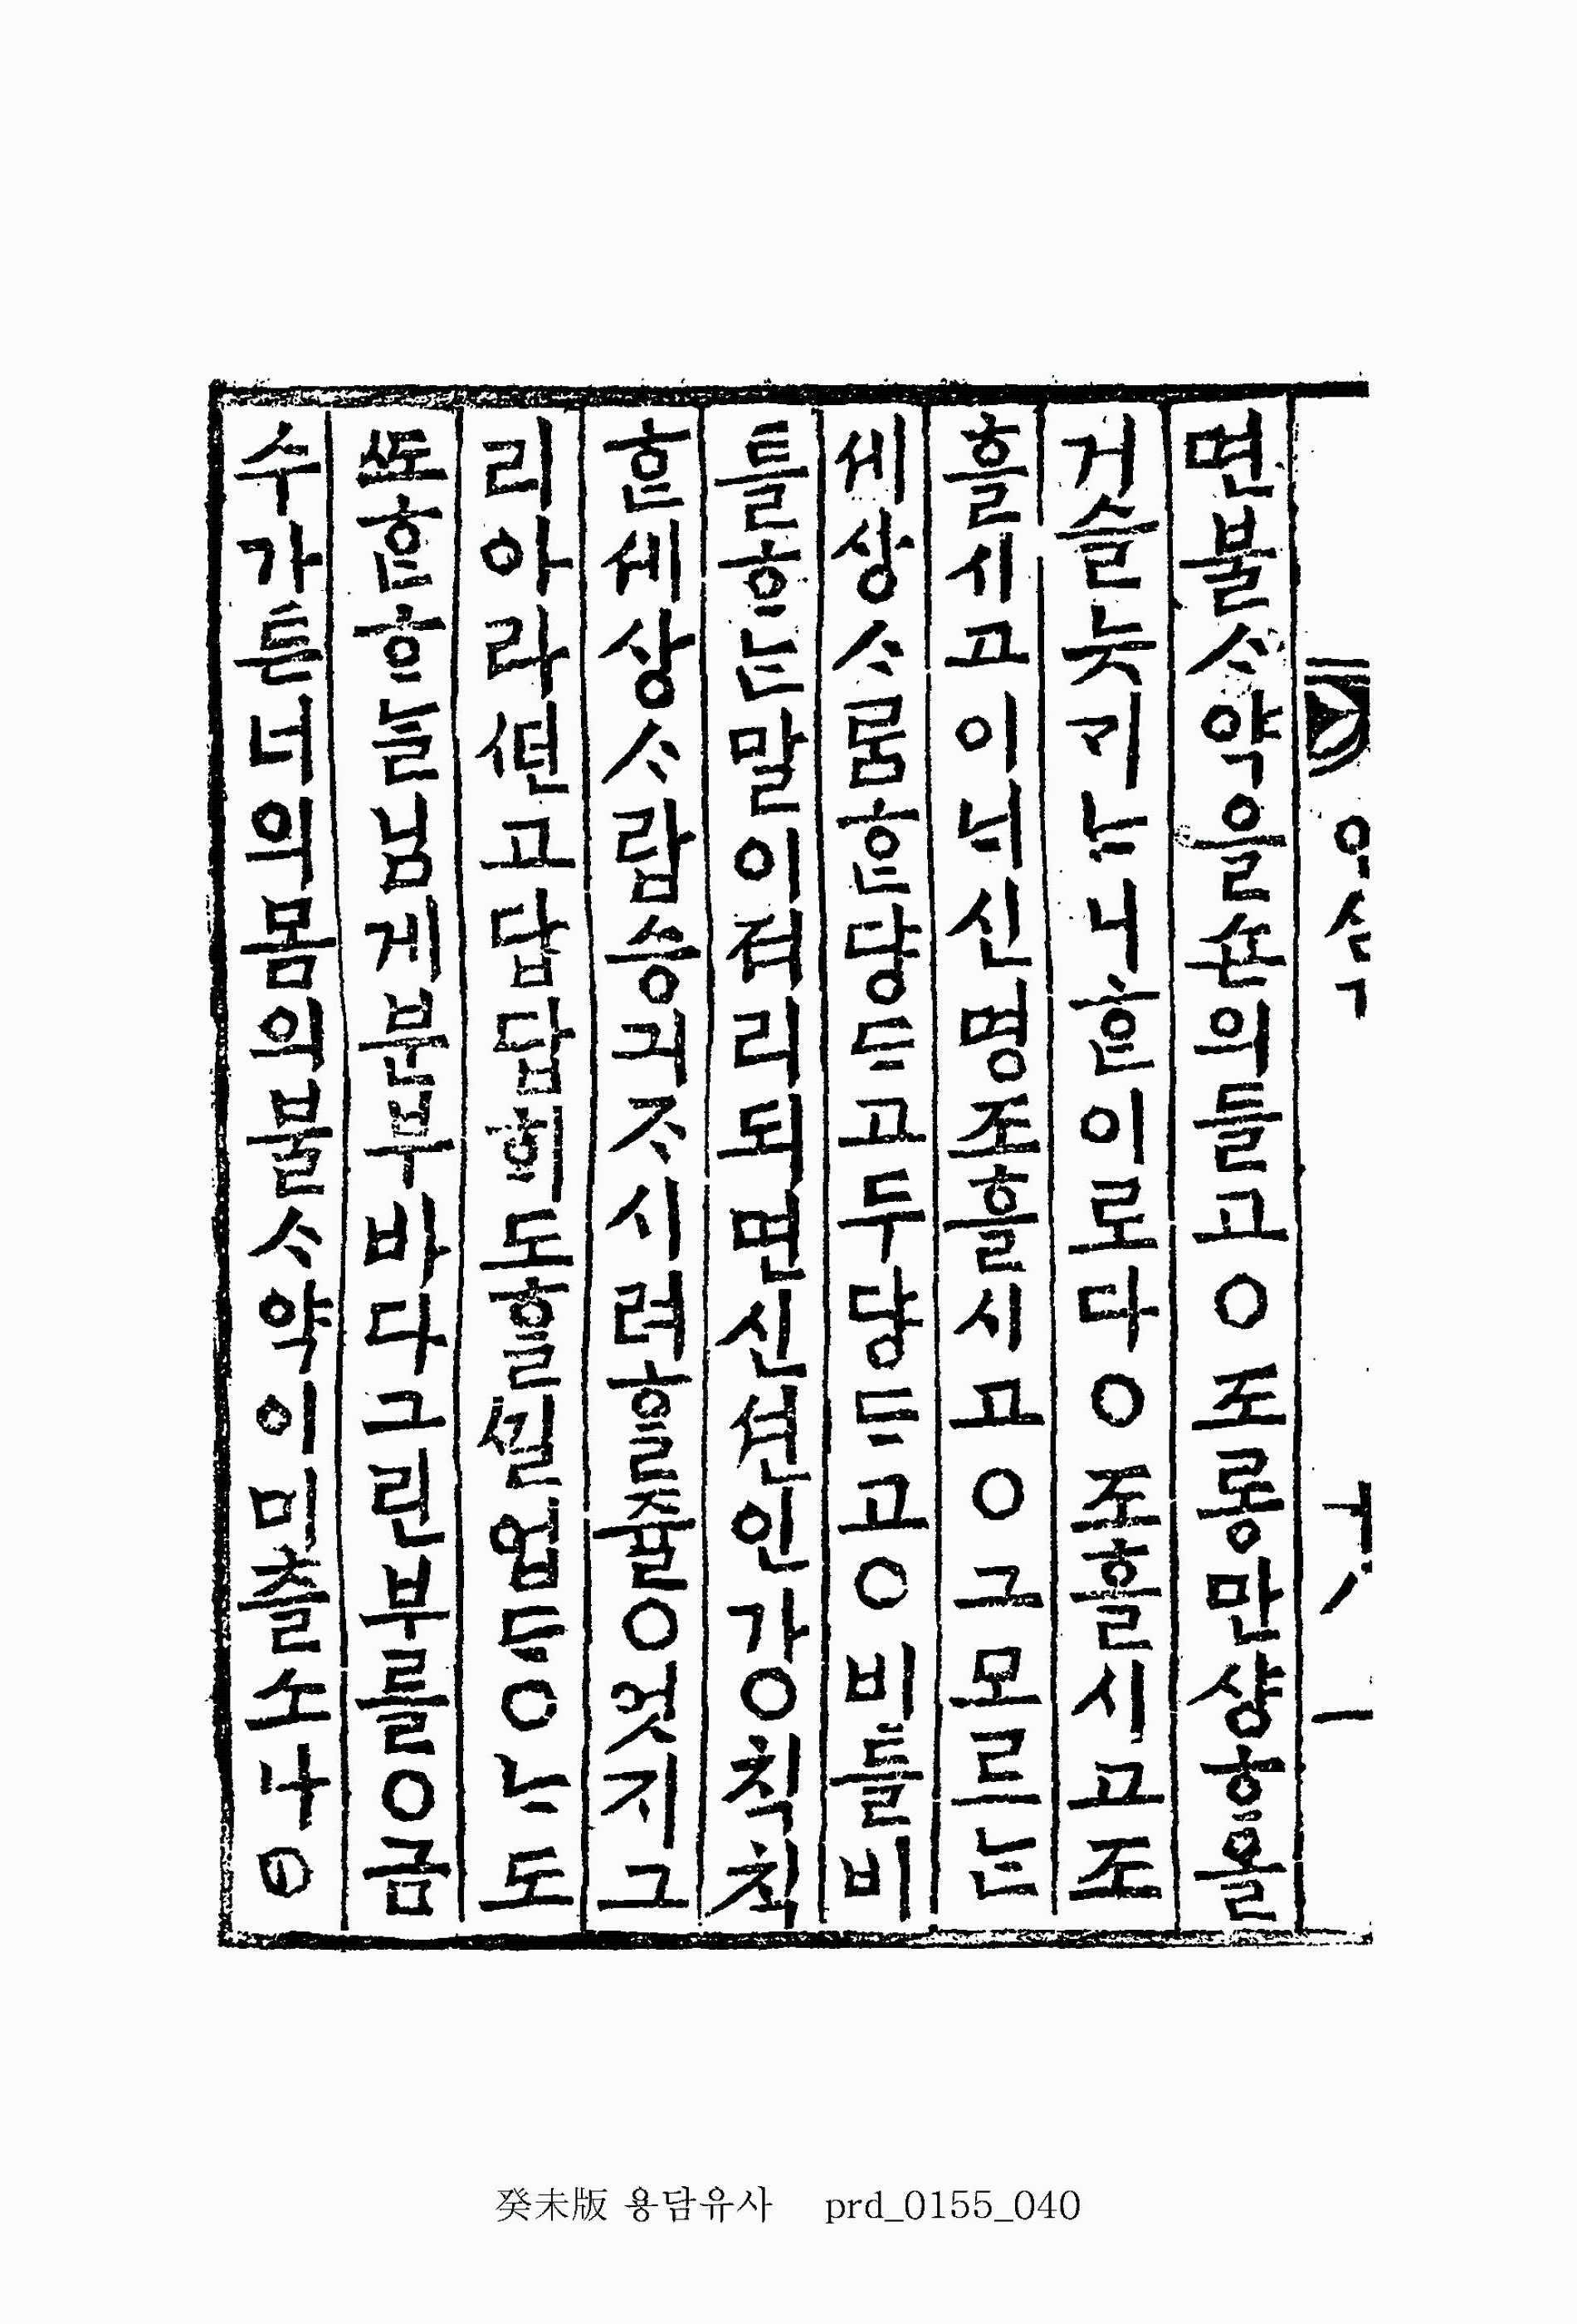 면불ᄉᆞ약을손의들고○조롱만샹ᄒᆞ올
거슬늣기ᄂᆞ니ᄒᆞᆫ이로다○조ᄒᆞᆯ시고조
ᄒᆞᆯ시고이ᄂᆡ신명조ᄒᆞᆯ시고○그모르ᄂᆞᆫ
세상ᄉᆞ룸ᄒᆞᆫ댱ᄃᆞ고두댱ᄃᆞ고○비틀비
틀ᄒᆞᄂᆞᆫ말이져리되면신션인가○칙칙
ᄒᆞᆫ세상ᄉᆞ람승긔ᄌᆞ시려ᄒᆞᆯ쥴○엇지그
리아라ᄯᅥᆫ고답답ᄒᆡ도ᄒᆞᆯᄭᅵᆯ업ᄃᆞ○ᄂᆞ도
ᄯᅩᄒᆞᆫᄒᆞᄂᆞᆯ님게분부바다그린부를○금
수가튼너의몸의불ᄉᆞ약이미츨소나○
癸未版 용담유사 prd_0155_040